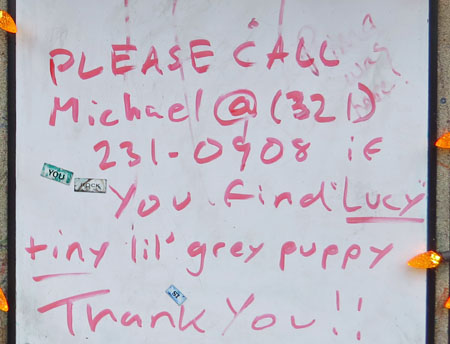 PLEASE CALL
Michael @ (321)
231-0908 if
You find "Lucy"
tiny lil' grey puppy
Thank You!!
YOU